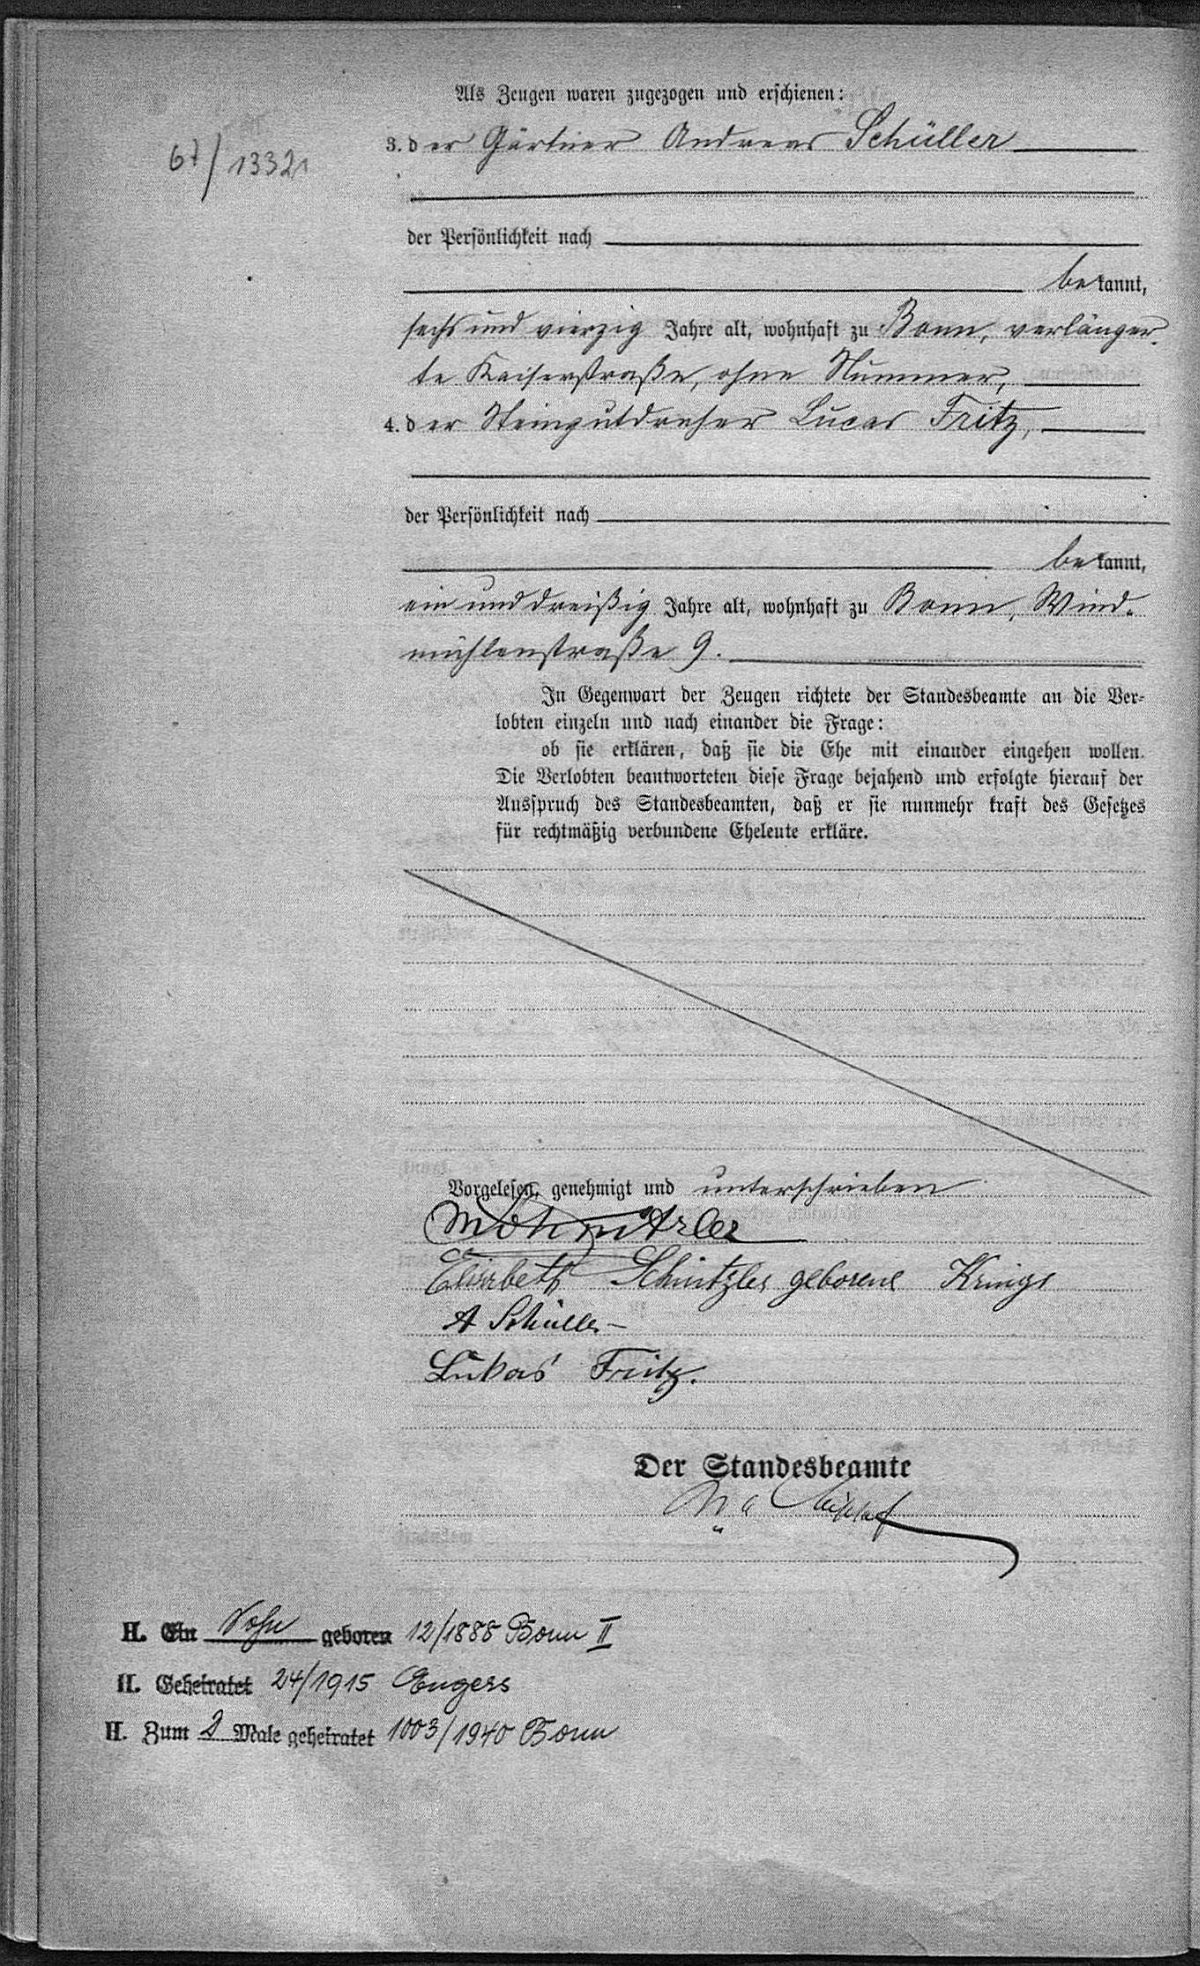 Als Zeugen waren zugezogen und erschienen:
67/13321
3. der Gärtner Andreas Schüller
der Persönlichkeit nach
bekannt,
sechs und vierzig Jahre alt, wohnhaft zu Bonn, verlänger-
te Kaiserstraße, ohne Nummer,
4. der Steingutdreher Lucas Fritz,
der Persönlichkeit nach
bekannt,
ein und dreißig Jahre alt, wohnhaft zu Bonn, Wind-
mühlenstraße 9.
In Gegenwart der Zeugen richtete der Standesbeamte an die Ver-
lobten einzeln und nach einander die Frage:
ob sie erklären, daß sie die Ehe mit einander eingehen wollen.
Die Verlobten beantworteten diese Frage bejahend und erfolgte hierauf der
Ausspruch des Standesbeamten, daß er sie nunmehr kraft des Gesetzes
für rechtmäßig verbundene Eheleute erkläre.
Vorgelesen, genehmigt und unterschrieben
Schnitzler
Elisabeth Schnitzler geborene Krings
A Schüller
Lukas Fritz.
Der Standesbeamte
II. Ein Sohn geboren 12/1888 Bonn II
II. Geheiratet 24/1915 Engers
II. Zum 2 Male geheiratet 1003/1940 Bonn